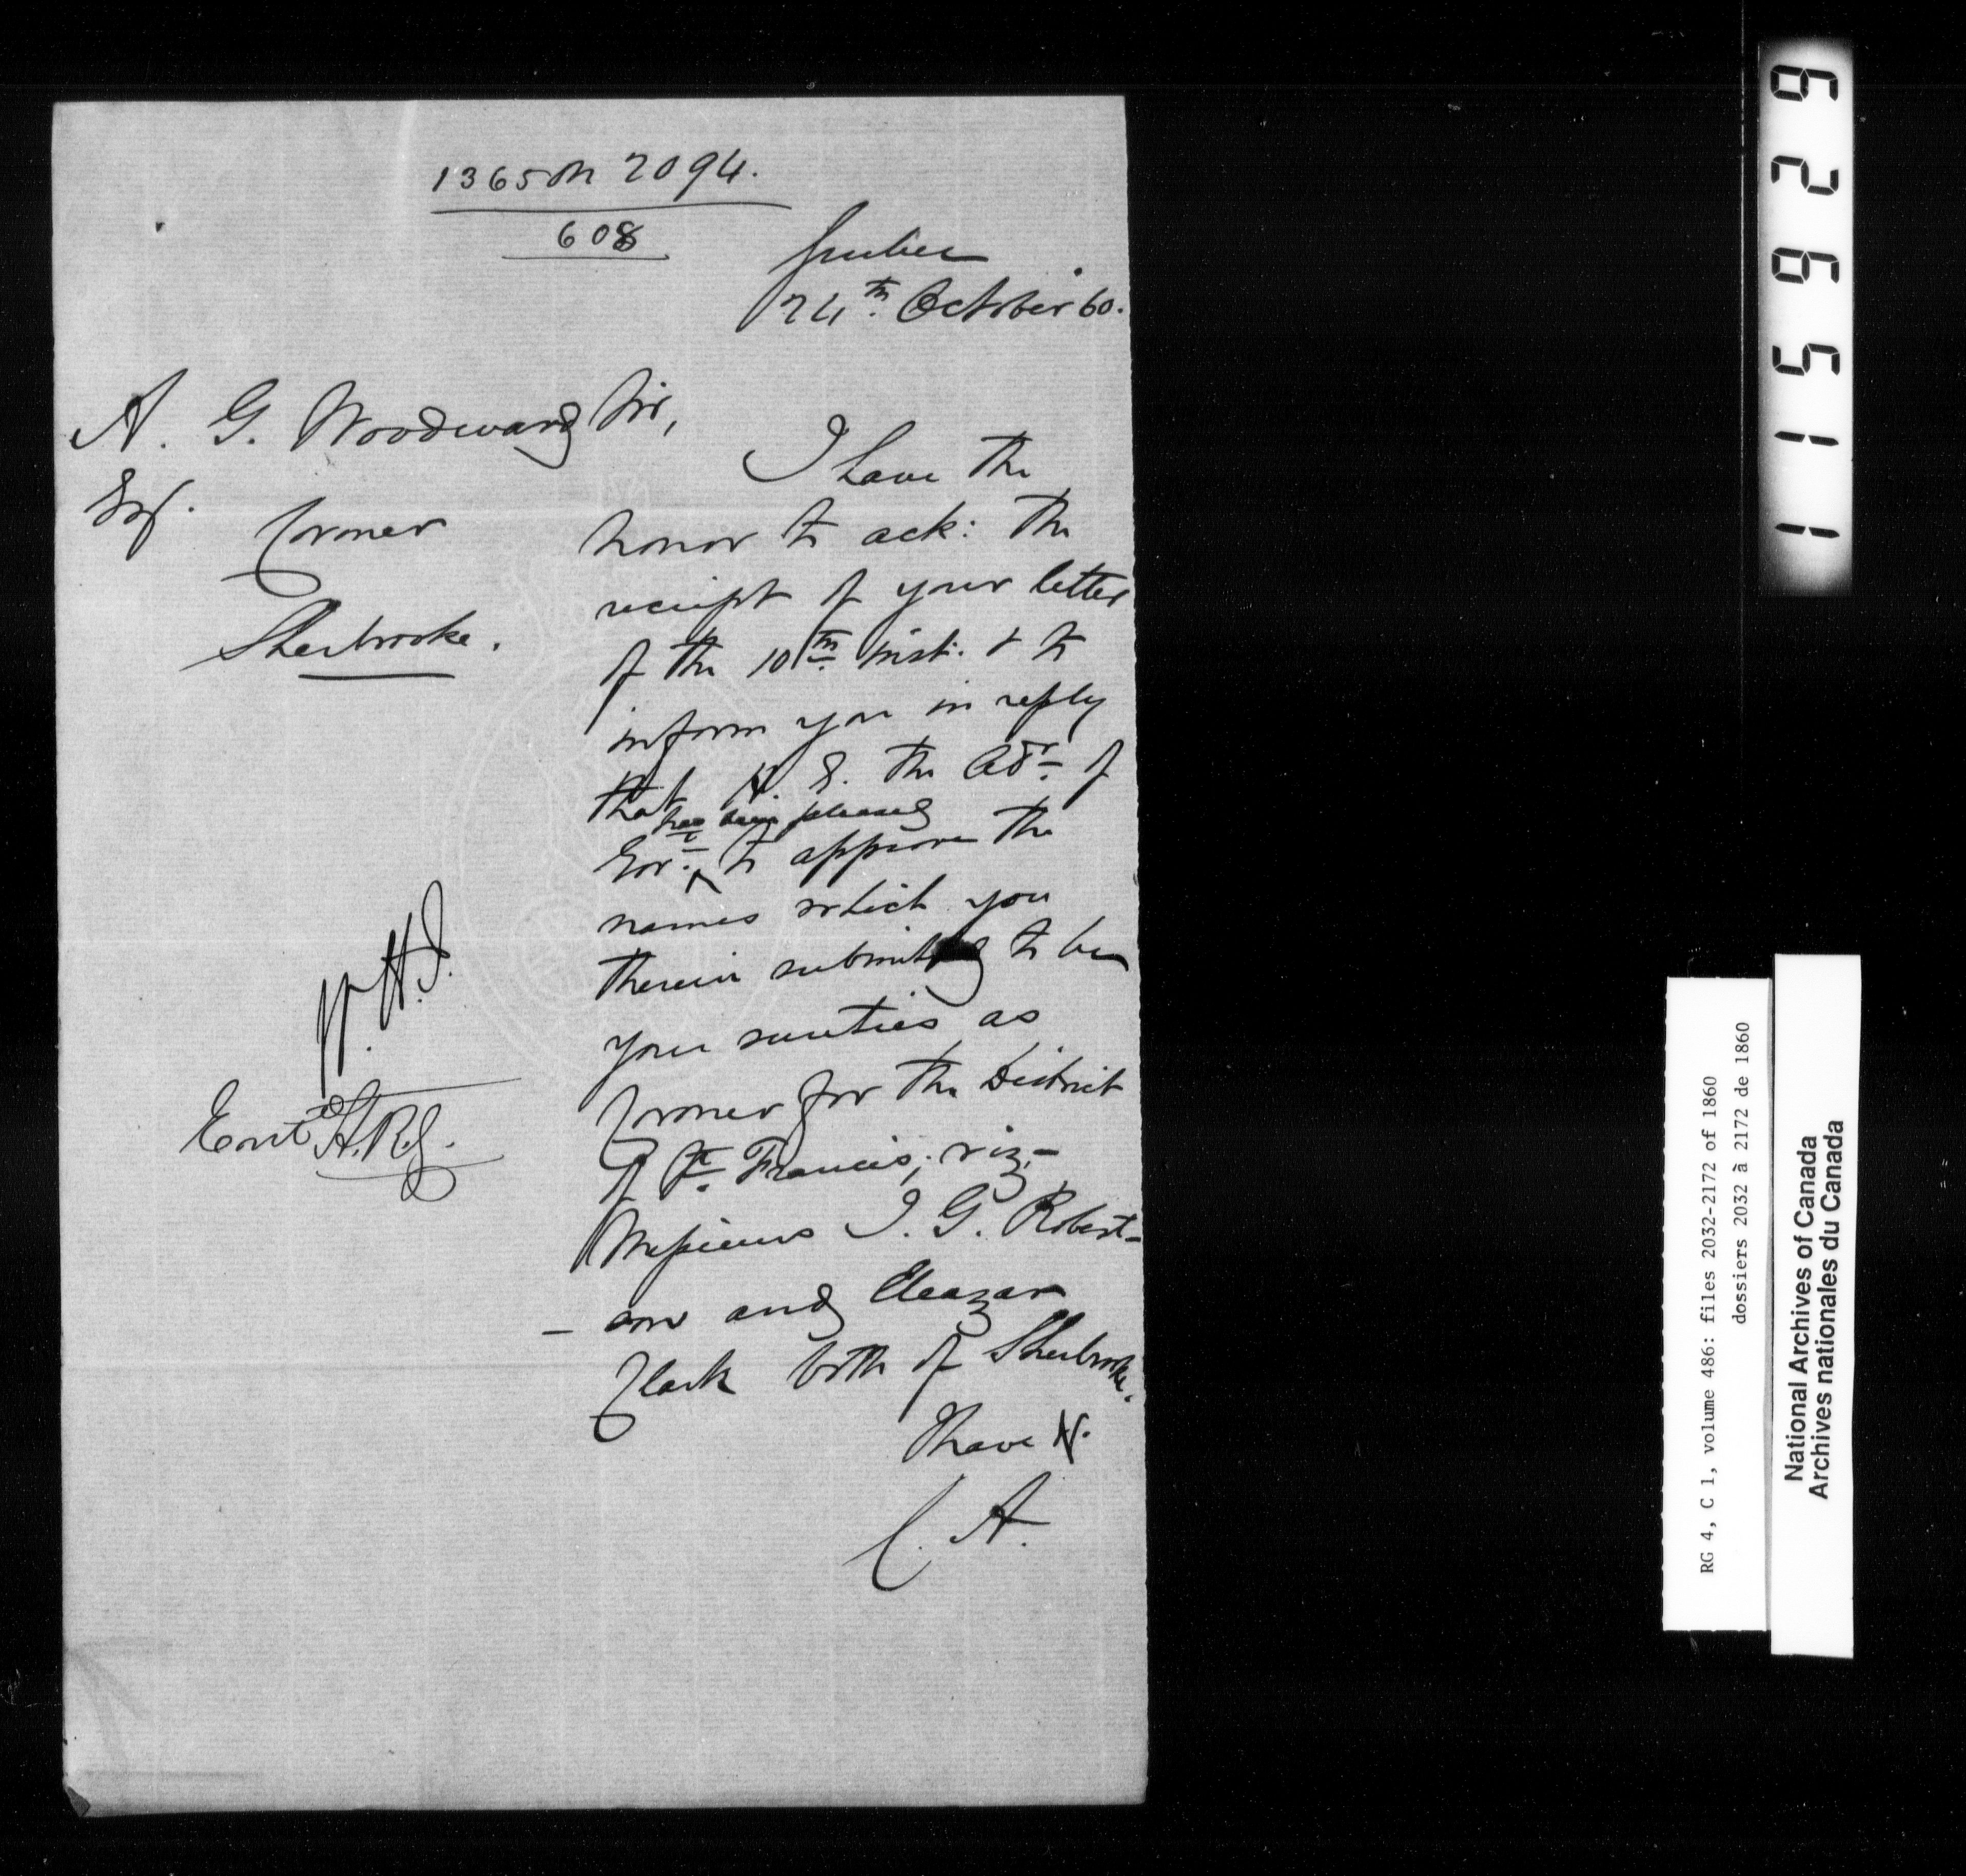 1365 on 2094.
608
Quebec
24th. October 60.
A. G. Woodward
Esq.
Coroner
Sherbrooke.
Sir,
I have the
honor to ack: the
receipt of your letter
of the 10th inst. & to
inform you in reply
that H. E. the Adr. of
Govt. has been pleased to approve the
names which you
therein submitted to be
your sureties as
Coroner for the District
of St. Francis; viz,-
Messieurs J. G. Robert-
-son and Eleazar
Clark both of Sherbrooke.
I have &.
C. A.
Entd.
National Archives of Canada
Archives nationales du Canada
RG 4, C 1, volume 486: files 2032-2172 of 1860
dossiers 2032 à 2172 de 1860
115929